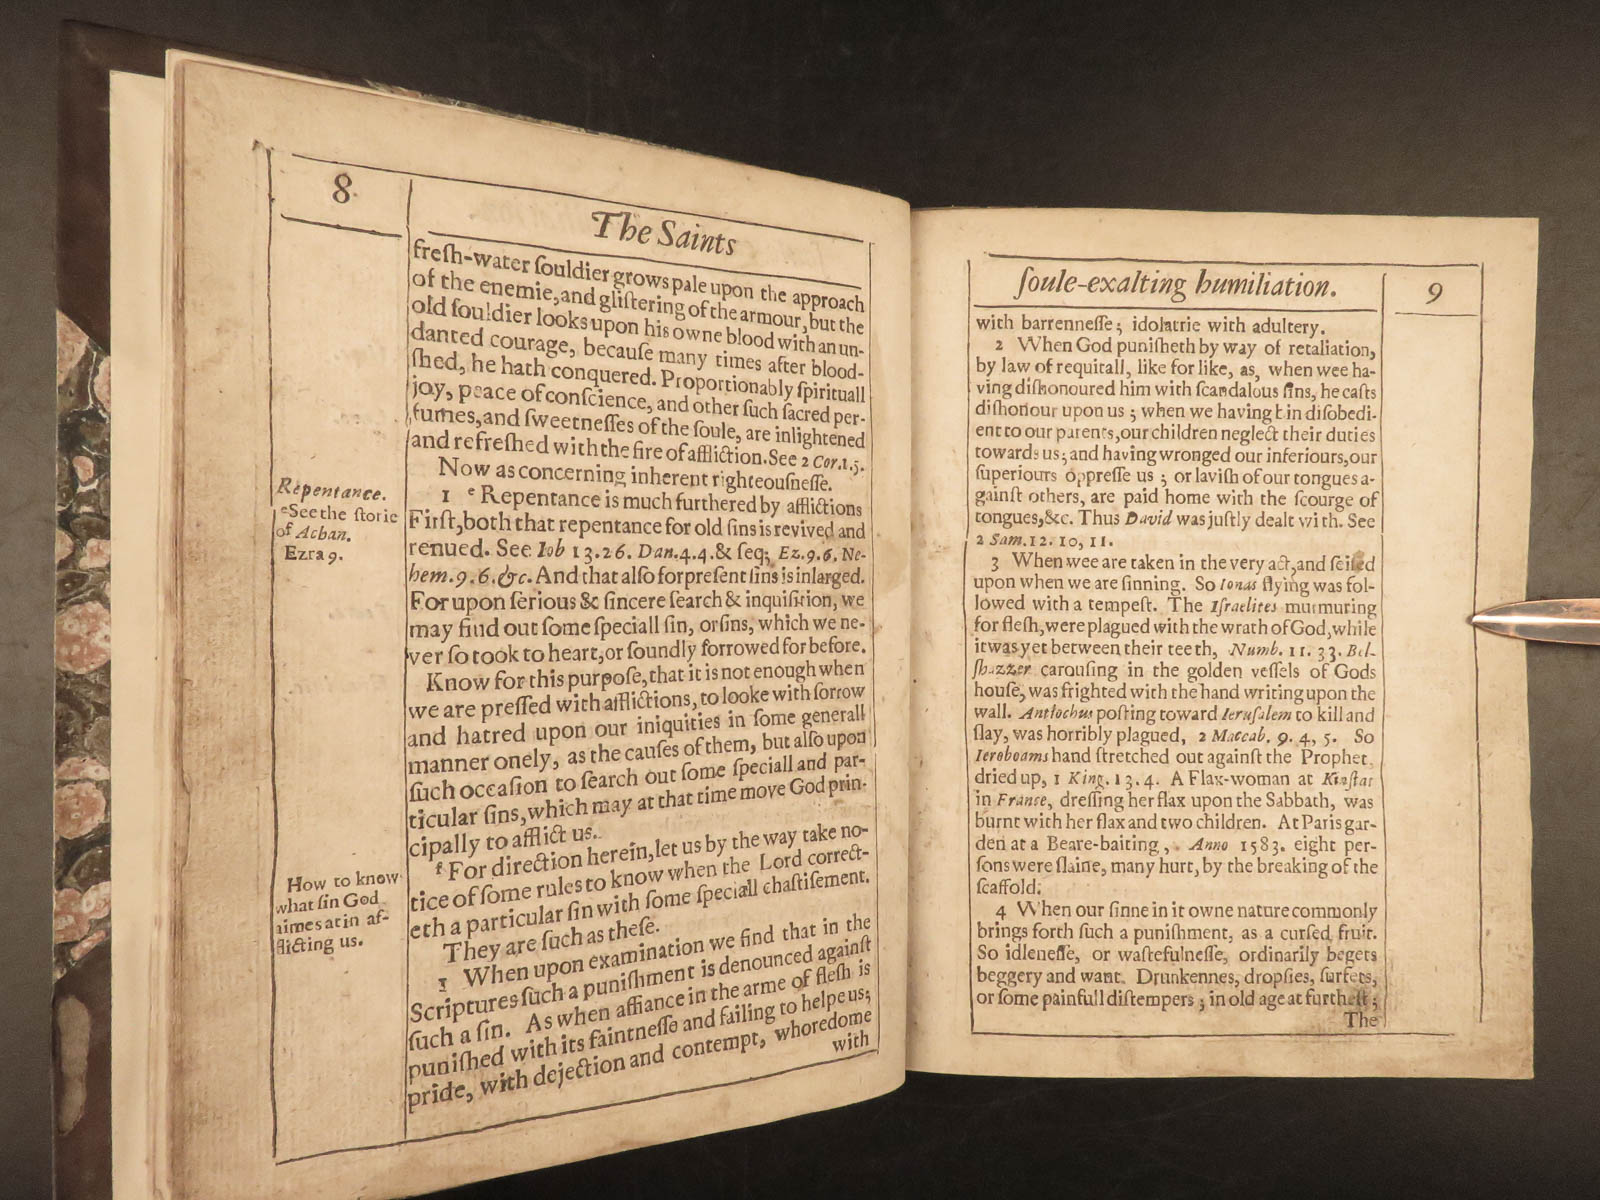 8
The Saints
freſh-water ſouldier grows pale upon the approach
of the enemie, and gliſtering of the armour, but the
old ſouldier looks upon his owne blood with an un-
danted courage, becauſe many times after blood-
ſhed, he hath conquered. Proportionably ſpirituall
joy, peace of conſcience, and other ſuch sacred per-
fumes, and ſweetneſſes of the ſoule, are inlightened
and refreſhed with the fire of affliction. See 2 Cor. 1. 5.
Now as concerning inherent righteouſneſſe.
Repentance.
e See the ſtorie
of Achan.
Ezra 9.
1 e Repentance is much furthered by afflictions
Firſt, both that repentance for old ſins is revived and
renued. See Iob 13.26. Dan. 4.4. & ſeq; Ez. 9.6. Ne-
hem. 9. 6. &c. And that alſo for preſent ſins is inlarged.
For upon ſerious & ſincere ſearch & inquiſition, we
may find out ſome ſpeciall ſin, or ſins, which we ne-
ver ſo took to heart, or ſoundly ſorrowed for before.
Know for this purpoſe, that it is not enough when
we are preſſed with afflictions, to looke with ſorrow
and hatred upon our iniquities in ſome generall
manner onely, as the cauſes of them, but alſo upon
ſuch occaſion to ſearch out ſome ſpeciall and par-
ticular ſins, which may at that time move God prin-
cipally to afflict us.
How to know
what ſin God
aimes at in af-
flicting us.
f For direction herein, let us by the way take no-
tice of ſome rules to know when the Lord correct-
eth a particular ſin with ſome ſpeciall chaſtiſement.
They are ſuch as theſe.
1 When upon examination we find that in the
Scriptures ſuch a puniſhment is denounced againſt
ſuch a ſin. As when affiance in the arme of fleſh is
puniſhed with its faintneſſe and failing to helpe us;
pride, with dejection and contempt, whoredome
with
ſoule-exalting humiliation.
9
with barrenneſſe; idolatrie with adultery.
2 When God puniſheth by way of retaliation,
by law of requitall, like for like, as, when wee ha-
ving diſhonoured him with ſcandalous ſins, he caſts
diſhonour upon us; when we having bin diſobedi-
ent to our parents, our children neglect their duties
towards us; and having wronged our inferiours, our
ſuperiours oppreſſe us; or laviſh of our tongues a-
gainſt others, are paid home with the ſcourge of
tongues, &c. Thus David was juſtly dealt with. See
2 Sam. 12. 10, 11.
3 When wee are taken in the very act, and ſeiſed
upon when we are ſinning. So Ionas flying was fol-
lowed with a tempeſt. The Iſraelites murmuring
for fleſh, were plagued with the wrath of God, while
it was yet between their teeth, Numb. 11. 33. Bel-
ſhazzer carouſing in the golden veſſels of Gods
houſe, was frighted with the hand writing upon the
wall. Antiochus poſting toward Ieruſalem to kill and
ſlay, was horribly plagued, 2 Maccab. 9. 4, 5. So
Ieroboams hand ſtretched out againſt the Prophet,
dried up, 1 King. 13. 4. A Flax-woman at Kinſtat
in France, dreſſing her flax upon the Sabbath, was
burnt with her flax and two children. At Paris gar-
den at a Beare-baiting, Anno 1583. eight per-
ſons were ſlaine, many hurt, by the breaking of the
ſcaffold.
4 When our ſinne in it owne nature commonly
brings forth ſuch a puniſhment, as a curſed fruit.
So idleneſſe, or waſtefulneſſe, ordinarily begets
beggery and want. Drunkennes, dropſies, ſurfets,
or ſome painfull diſtempers; in old age at furtheſt;
The